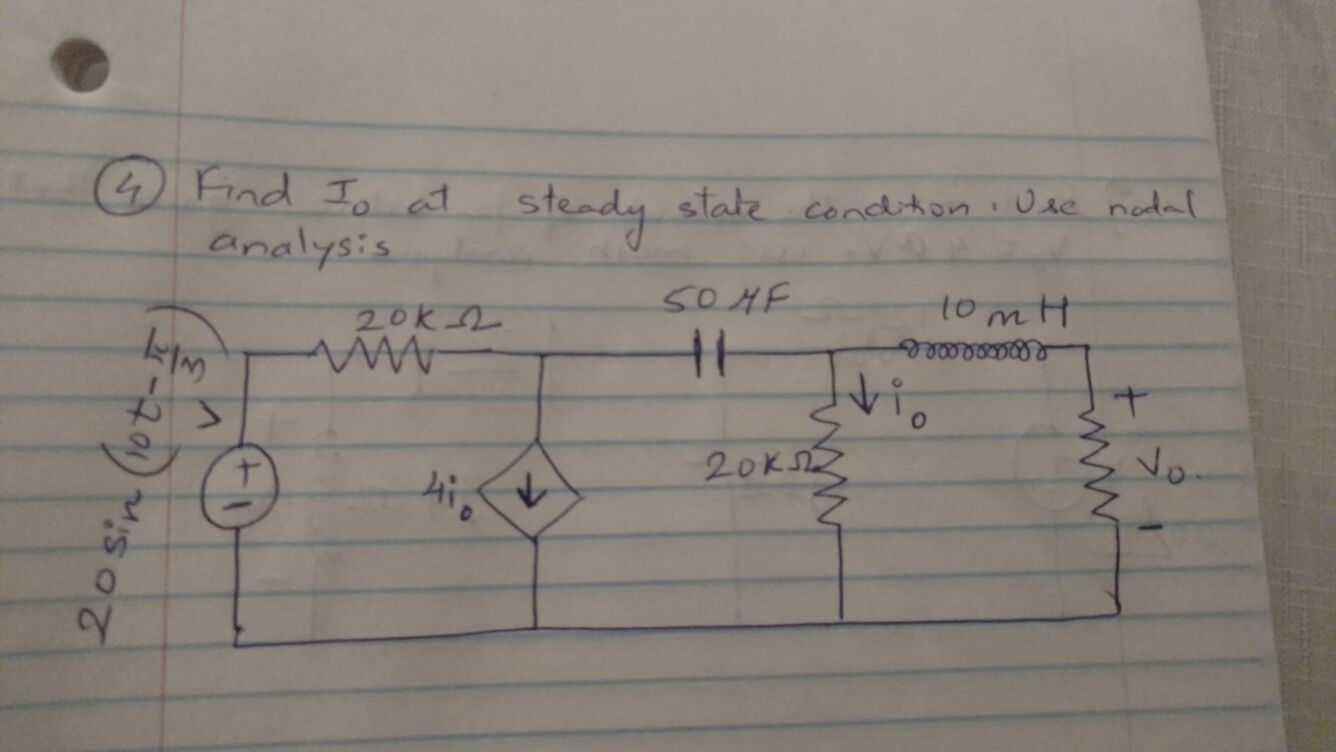 ④ Find I₀ at steady state condition. Use nodal
analysis
20 sin (10t - π/3) V
+
-
20K Ω
4i₀
50 μF
20KΩ
i₀
10 mH
+
V₀.
-